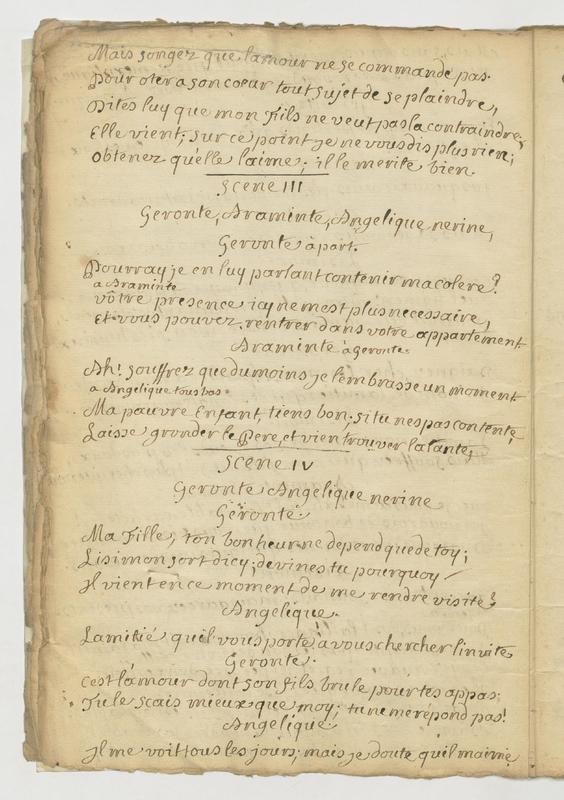 Mais songez que lamour ne se commande pas.
Pour oter a son coeur tout sujet de se plaindre,
Dites luy que mon fils ne veut pas la contraindre.
Elle vient; sur ce point je ne vous dis plus rien;
obtenez qu'elle laime; il le merite bien.
Scene III
Geronte, Araminte, Angelique nerine,
Geronte à part.
Pourray je en luy parlant contenir ma colere?
a Araminte
vôtre presence icy ne m'est plus necessaire,
Et vous pouvez rentrer dans votre appartement.
Araminte à Geronte.
Ah! souffrez que du moins je l'embrasse un moment
a Angelique tous bas.
Ma pauvre Enfant, tiens bon; si tu nes pas contente,
Laisse gronder le Pere, et vien trouver la tante,
Scene IV
Geronte Angelique nerine
Geronte.
Ma Fille, ton bonheur ne depend que de toy;
Lisimon sort dicy; devines tu pourquoy
Il vient en ce moment de me rendre visite?
Angelique.
Lamitié quil vous porte à vous chercher linvite
Geronte.
cest l'amour dont son fils brule pour tes appas.
Tu le scais mieux que moy; tu ne me répond pas!
Angelique
Il me voit tous les jours; mais je doute quil maime